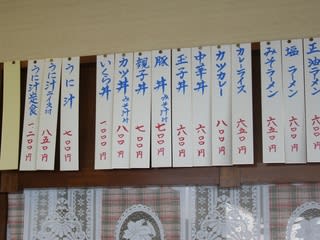 正油ラーメン
塩ラーメン 六五〇円
みそラーメン 六五〇円
カレーライス 六五〇円
カツカレー 八〇〇円
中華丼 六〇〇円
玉子丼 六〇〇円
豚丼 みそ汁付 七〇〇円
親子丼 七〇〇円
カツ丼 みそ汁付 八〇〇円
いくら丼 一〇〇〇円
うに汁 七〇〇円
うに汁ライス付 八五〇円
うに汁定食 一二〇〇円